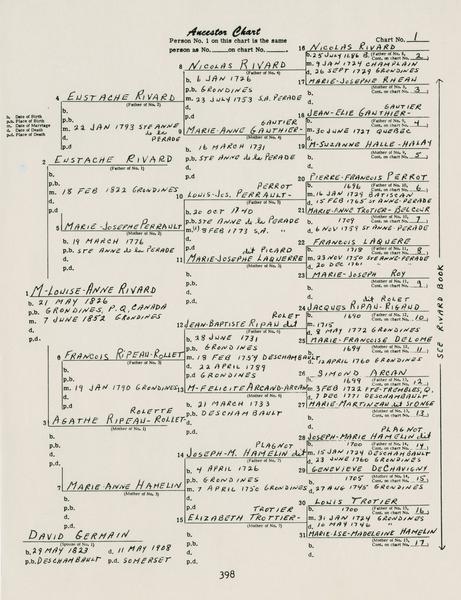 Ancestor Chart
Person No. 1 on this chart is the same
person as No. ___ on chart No. ___.
Chart No. 1
b. Date of Birth
p.b. Place of Birth
m. Date of Marriage
d. Date of Death
p.d. Place of Death
1 M-Louise-Anne Rivard
b. 21 May 1826
p.b. Grondines, P.Q. Canada
m. 7 June 1852 Grondines
d.
p.d.
2 Eustache Rivard
(Father of No. 1)
b.
p.b.
m. 18 Feb 1822 Grondines
d.
p.d.
3 Agathe Ripeau-Rollet
Rolette
(Mother of No. 1)
b.
p.b.
d.
p.d.
4 Eustache Rivard
(Father of No. 2)
b.
p.b.
m. 22 Jan 1793 Ste Anne
de la
Perade
d.
p.d.
5 Marie-Josephe Perrault
(Mother of No. 2)
b. 19 March 1776
p.b. Ste Anne de la Perade
d.
p.d.
6 Francois Ripeau-Rollet
(Father of No. 3)
b.
p.b.
m. 19 Jan 1790 Grondines
d.
p.d.
7 Marie-Anne Hamelin
(Mother of No. 3)
b.
p.b.
d.
p.d.
8 Nicolas Rivard
(Father of No. 4)
b. 6 Jan 1726
p.b. Grondines
m. 23 July 1753 S.A. Perade
d.
p.d.
Gautier
9 Marie-Anne Gauthier-
(Mother of No. 4)
b. 16 March 1731
p.b. Ste Anne de la Perade
d.
p.d.
Perrot
10 Louis-Jos. Perrault-
(Father of No. 5)
b. 20 Oct 1740
p.b. Ste Anne de la Perade
m.(1) 8 Feb 1773 S.A. "
d.
p.d.
dit Picard
11 Marie-Joseph Laquerre
(Mother of No. 5)
b.
p.b.
d.
p.d.
Rolet
12 Jean-Baptiste Ripau dit
(Father of No. 6)
b. 28 June 1731
p.b. Grondines
m. 18 Feb 1754 Deschambault
d. 22 April 1789
p.d. Grondines
13 M-Felicite Arcand-Arcan
(Mother of No. 6)
b. 21 March 1733
p.b. Deschambault
d.
p.d.
Plagnot
14 Joseph-M. Hamelin dit
(Father of No. 7)
b. 4 April 1726
p.b. Grondines
m. 7 April 1750 Grondines
d.
p.d.
Trotier
15 Elizabeth Trottier-
(Mother of No. 7)
b.
p.b.
d.
p.d.
16 Nicolas Rivard
b. 25 July 1686 B.
m. 9 Jan 1724 Champlain
d. 26 Sept 1729 Grondines
(Father of No. 8, Cont. on chart No. 2)
17 Marie-Josephe Rheau
b.
d.
(Mother of No. 8, Cont. on chart No. 3)
Gautier
18 Jean-Elie Gauthier-
b.
m. 30 June 1727 Quebec
d.
(Father of No. 9, Cont. on chart No. 4)
19 M-Suzanne Halle-Halay
b.
d.
(Mother of No. 9, Cont. on chart No. 5)
20 Pierre-Francois Perrot
b. 1696
m. 16 Jan 1729 Batiscan
d. 15 Feb 1765 St Anne-Perade
(Father of No. 10, Cont. on chart No. 6)
21 Marie-Anne Trotier-Belcour
b. 1709
d. 6 Nov 1759 St Anne-Perade
(Mother of No. 10, Cont. on chart No. 7)
22 Francois Laquere
b. 1718
m. 23 Nov 1750 Ste Anne-Perade
d. 20 Dec 1761 "
(Father of No. 11, Cont. on chart No. 8)
23 Marie-Joseph Roy
b.
d.
(Mother of No. 11, Cont. on chart No. 9)
dit Rolet
24 Jacques Ripau-Rigaud
b. 1690
m. 1715
d. 8 May 1772 Grondines
(Father of No. 12, Cont. on chart No. 10)
25 Marie-Francoise Delome
b. 1694
d. 12 April 1760 Grondines
(Mother of No. 12, Cont. on chart No. 11)
26 Simond Arcan
b. 1699
m. 5 Feb 1722 Pte-Trembles, Q.
d. 7 Dec 1771 Deschambault
(Father of No. 13, Cont. on chart No. 12)
27 Marie Martinzau dit St Onge
b.
d.
(Mother of No. 13, Cont. on chart No. 13)
Plagnot
28 Joseph-Marie Hamelin dit
b. 1700
m. 15 Jan 1724 Deschambault
d. 23 June 1760 Grondines
(Father of No. 14, Cont. on chart No. 14)
29 Genevieve DeChavigny
b. 1705
d. 27 Aug 1745 Grondines
(Mother of No. 14, Cont. on chart No. 15)
30 Louis Trotier
b. 1700
m. 31 Jan 1724 Grondines
d. 10 May 1746 "
(Father of No. 15, Cont. on chart No. 16)
31 Marie-Ise-Madeleine Hamelin
b.
d.
(Mother of No. 15, Cont. on chart No. 17)
See Rivard Book
David Germain
(Spouse of No. 1)
b. 29 May 1823 d. 11 May 1908
p.b. Deschambault p.d. Somerset
398